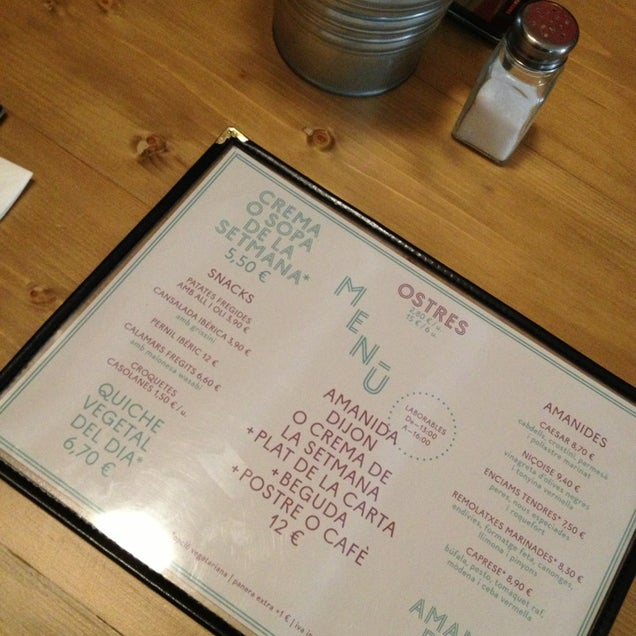 CREMA
O SOPA
DE LA
SETMANA*
5,50 €
SNACKS
PATATES FREGIDES
AMB ALL I OLI 3,90
CANSALADA IBÈRICA 3,90
amb grissini
PERNIL IBÈRIC 12 €
CALAMARS FREGITS 6,60 €
amb maionesa wasabi
CROQUETES
CASOLANES 1,50 €/u.
QUICHE
VEGETAL
DEL DIA*
6,70 €
MENÚ
OSTRES
2,80 €/u.
15 €/6 u.
LABORABLES
De–13:00
A–16:00
AMANIDA
DIJON
O CREMA DE
LA SETMANA
+ PLAT DE LA CARTA
+ BEGUDA
+ POSTRE O CAFÈ
12 €
AMANIDES
CAESAR 8,70 €
cabdells, crostini, parmesà
i pollastre marinat
NIÇOISE 9,40 €
vinagreta d'olives negres
i tonyina vermella
ENCIAMS TENDRES* 7,50 €
peres, nous especiades
i roquefort
REMOLATXES MARINADES* 8,50 €
endívies, formatge feta, canonges,
llimona i pinyons
CAPRESE* 8,90 €
búfala, pesto, tomàquet raf,
mòdena i ceba vermella
AMAN
vegetariana | panera extra +1 € | iva in